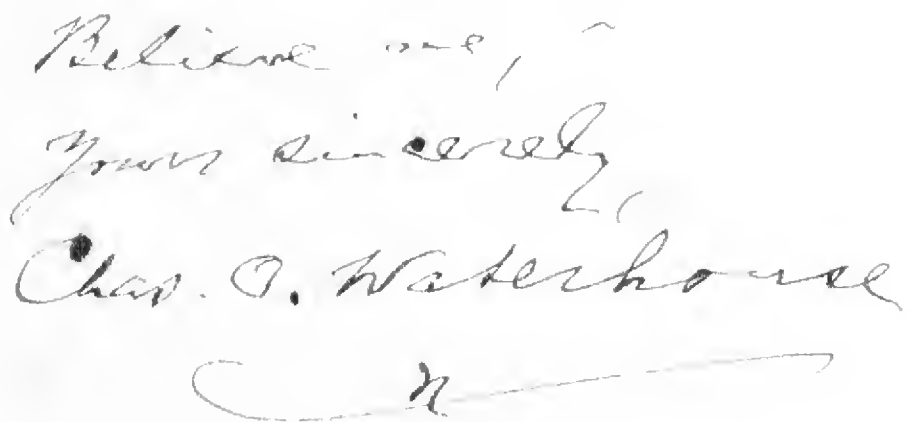 Believe me,
Yours sincerely,
Chas. O. Waterhouse